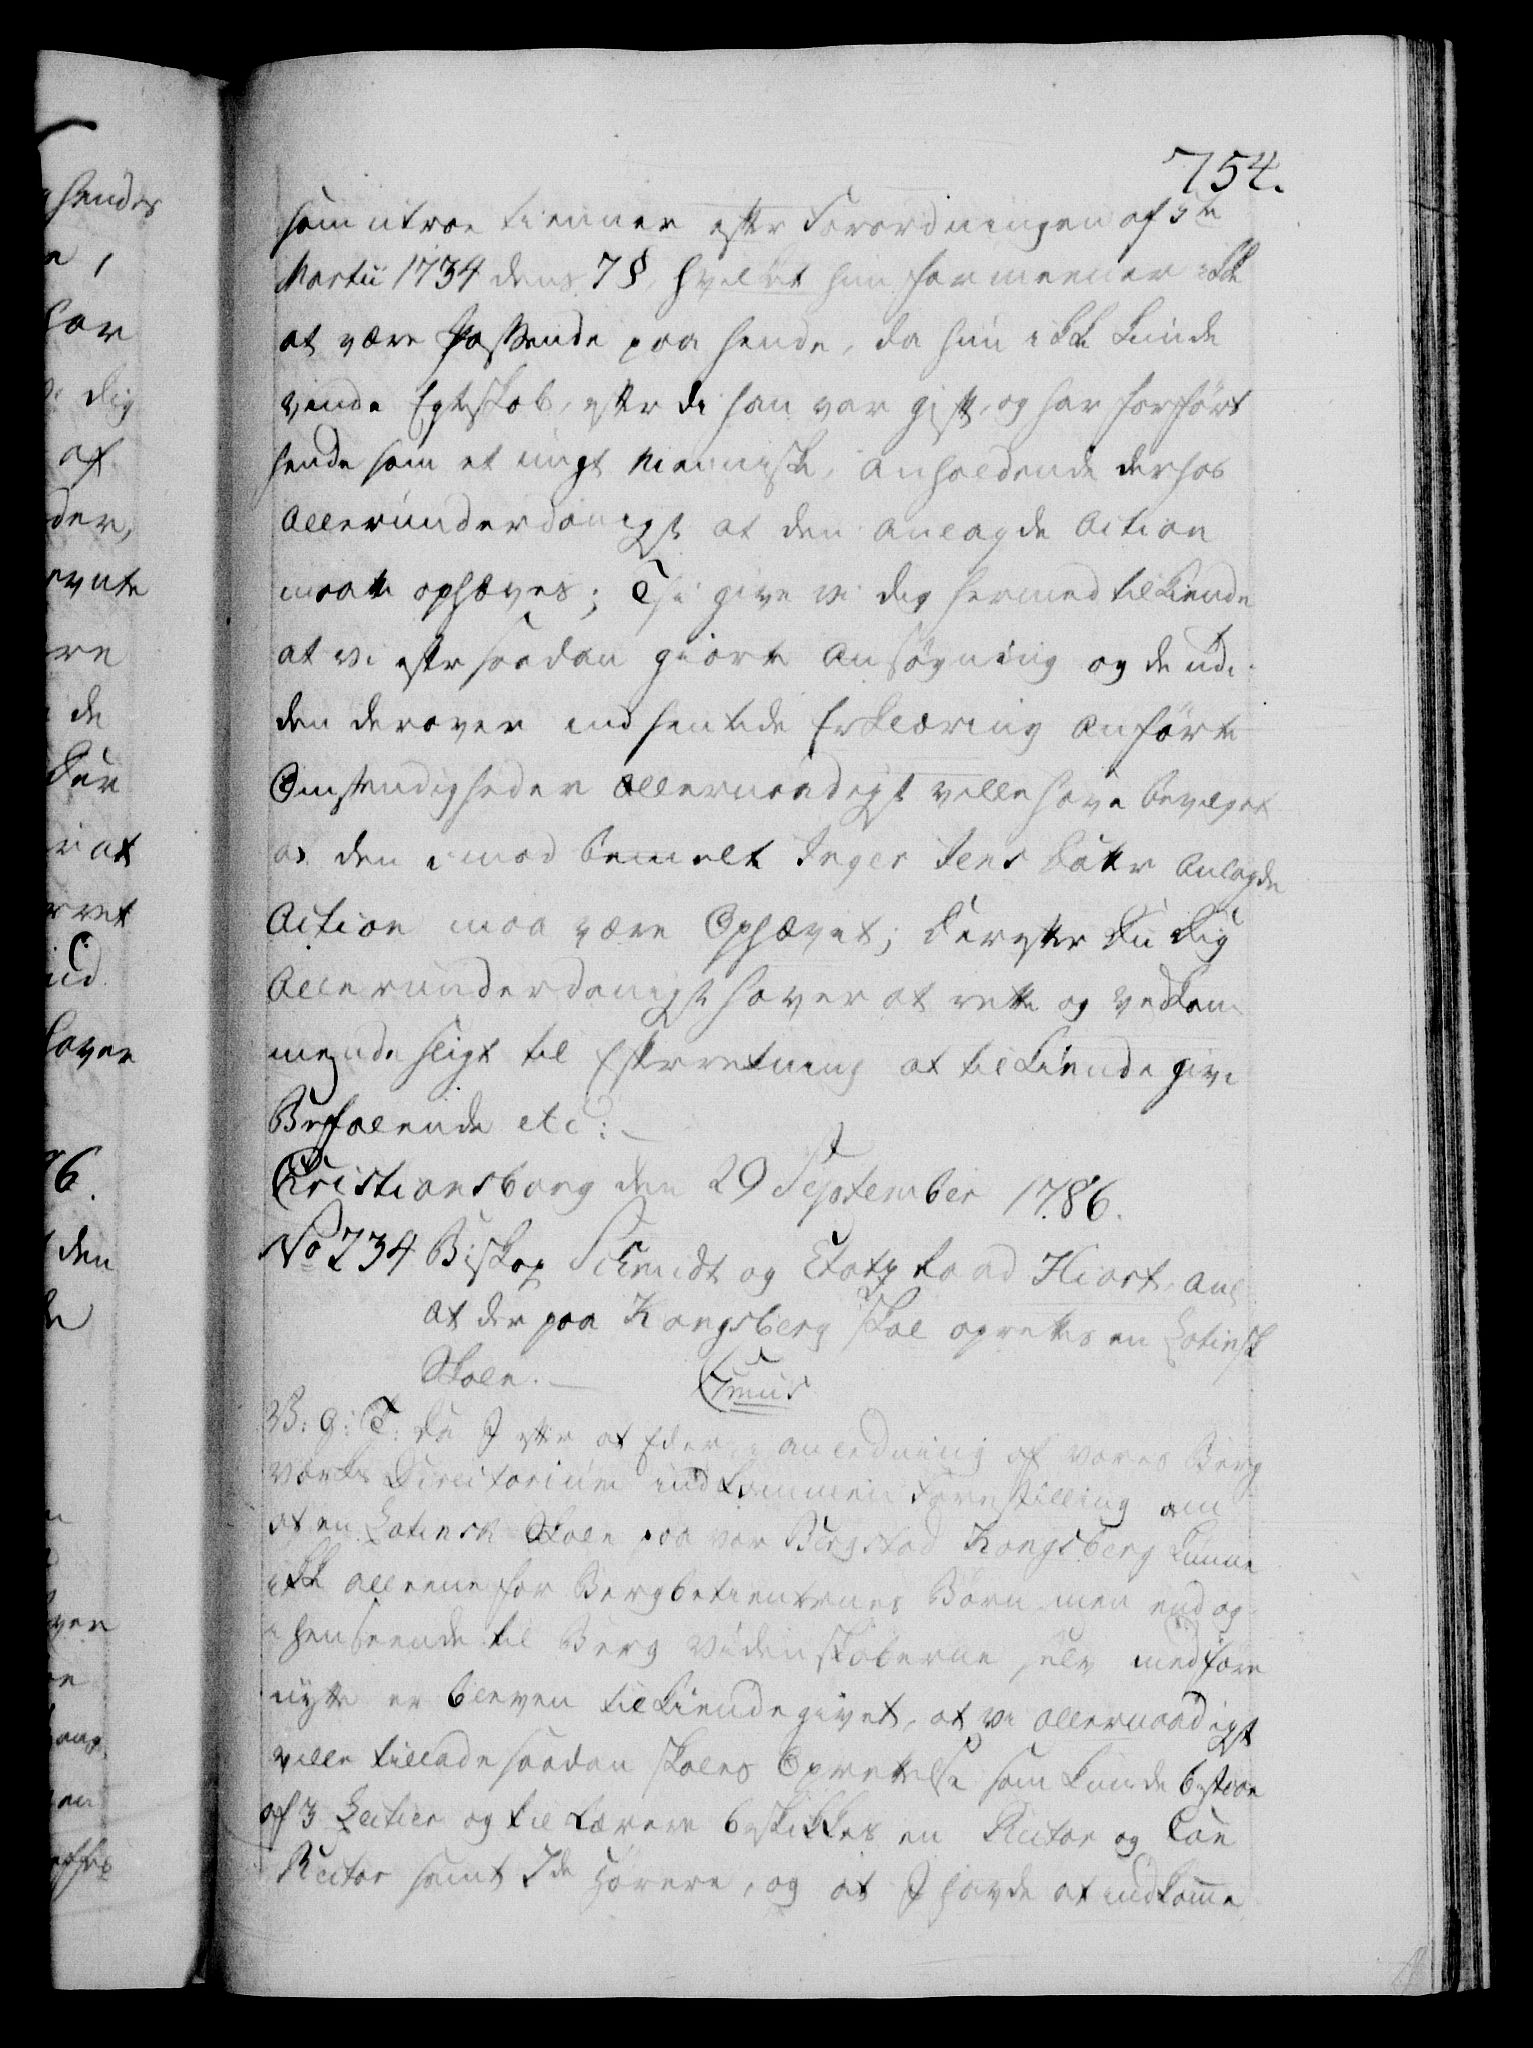 754.
som utroe tienner efter Forordningen af 5te
Martii 1734 dens 7 §, hvilket hun formeener ikke
at være passende paa hende, da hun ikke kunde
vende Egteskab, efterdi han var gift, og har forført
hende som et ungt Menniske, anholdende derhos
Allerunderdanigst at den anlagde Action
maatte ophæves; Thi give vi dig hermed tilkiende
at vi efter saadan giorte Ansøgning og de udi
den derover indhentede Erklæring anførte
Omstændigheder Allernaadigst ville have bevilget
at den imod bemelte Inger Jens Datter Anlagde
Action maa være Ophævet; Derefter Du Dig
Allerunderdanigst haver at rette og vedkom
mende sligt til Efterretning at tilkiende give
Befalende etc:
Christiansborg den 29 September 1786.
No 734 Biskop Schmidt og Etatz Raad Hiort, anl
at der paa Kongsberg Skal oprettes en Latinsk
Skole.
V: G: T: Da I efter at Eder i anledning af vores Berg
værks Directorium indkommen Forestilling om
at en Latinsk Skole paa vor Bergstad Kongsberg kunne
ikke alleene for Bergbetienternes Børn men endog
i henseende til Berg Videnskaberne selv medføre
nytte er bleven tilkiendegivet, at vi allernaadigst
ville tillade saadan Skoles Oprettelse som kunde bestaae
af 3 Lectier og til Lærere beskikkes en Rector og Con
Rector samt 2de Hørere, og at I havde at indkomme